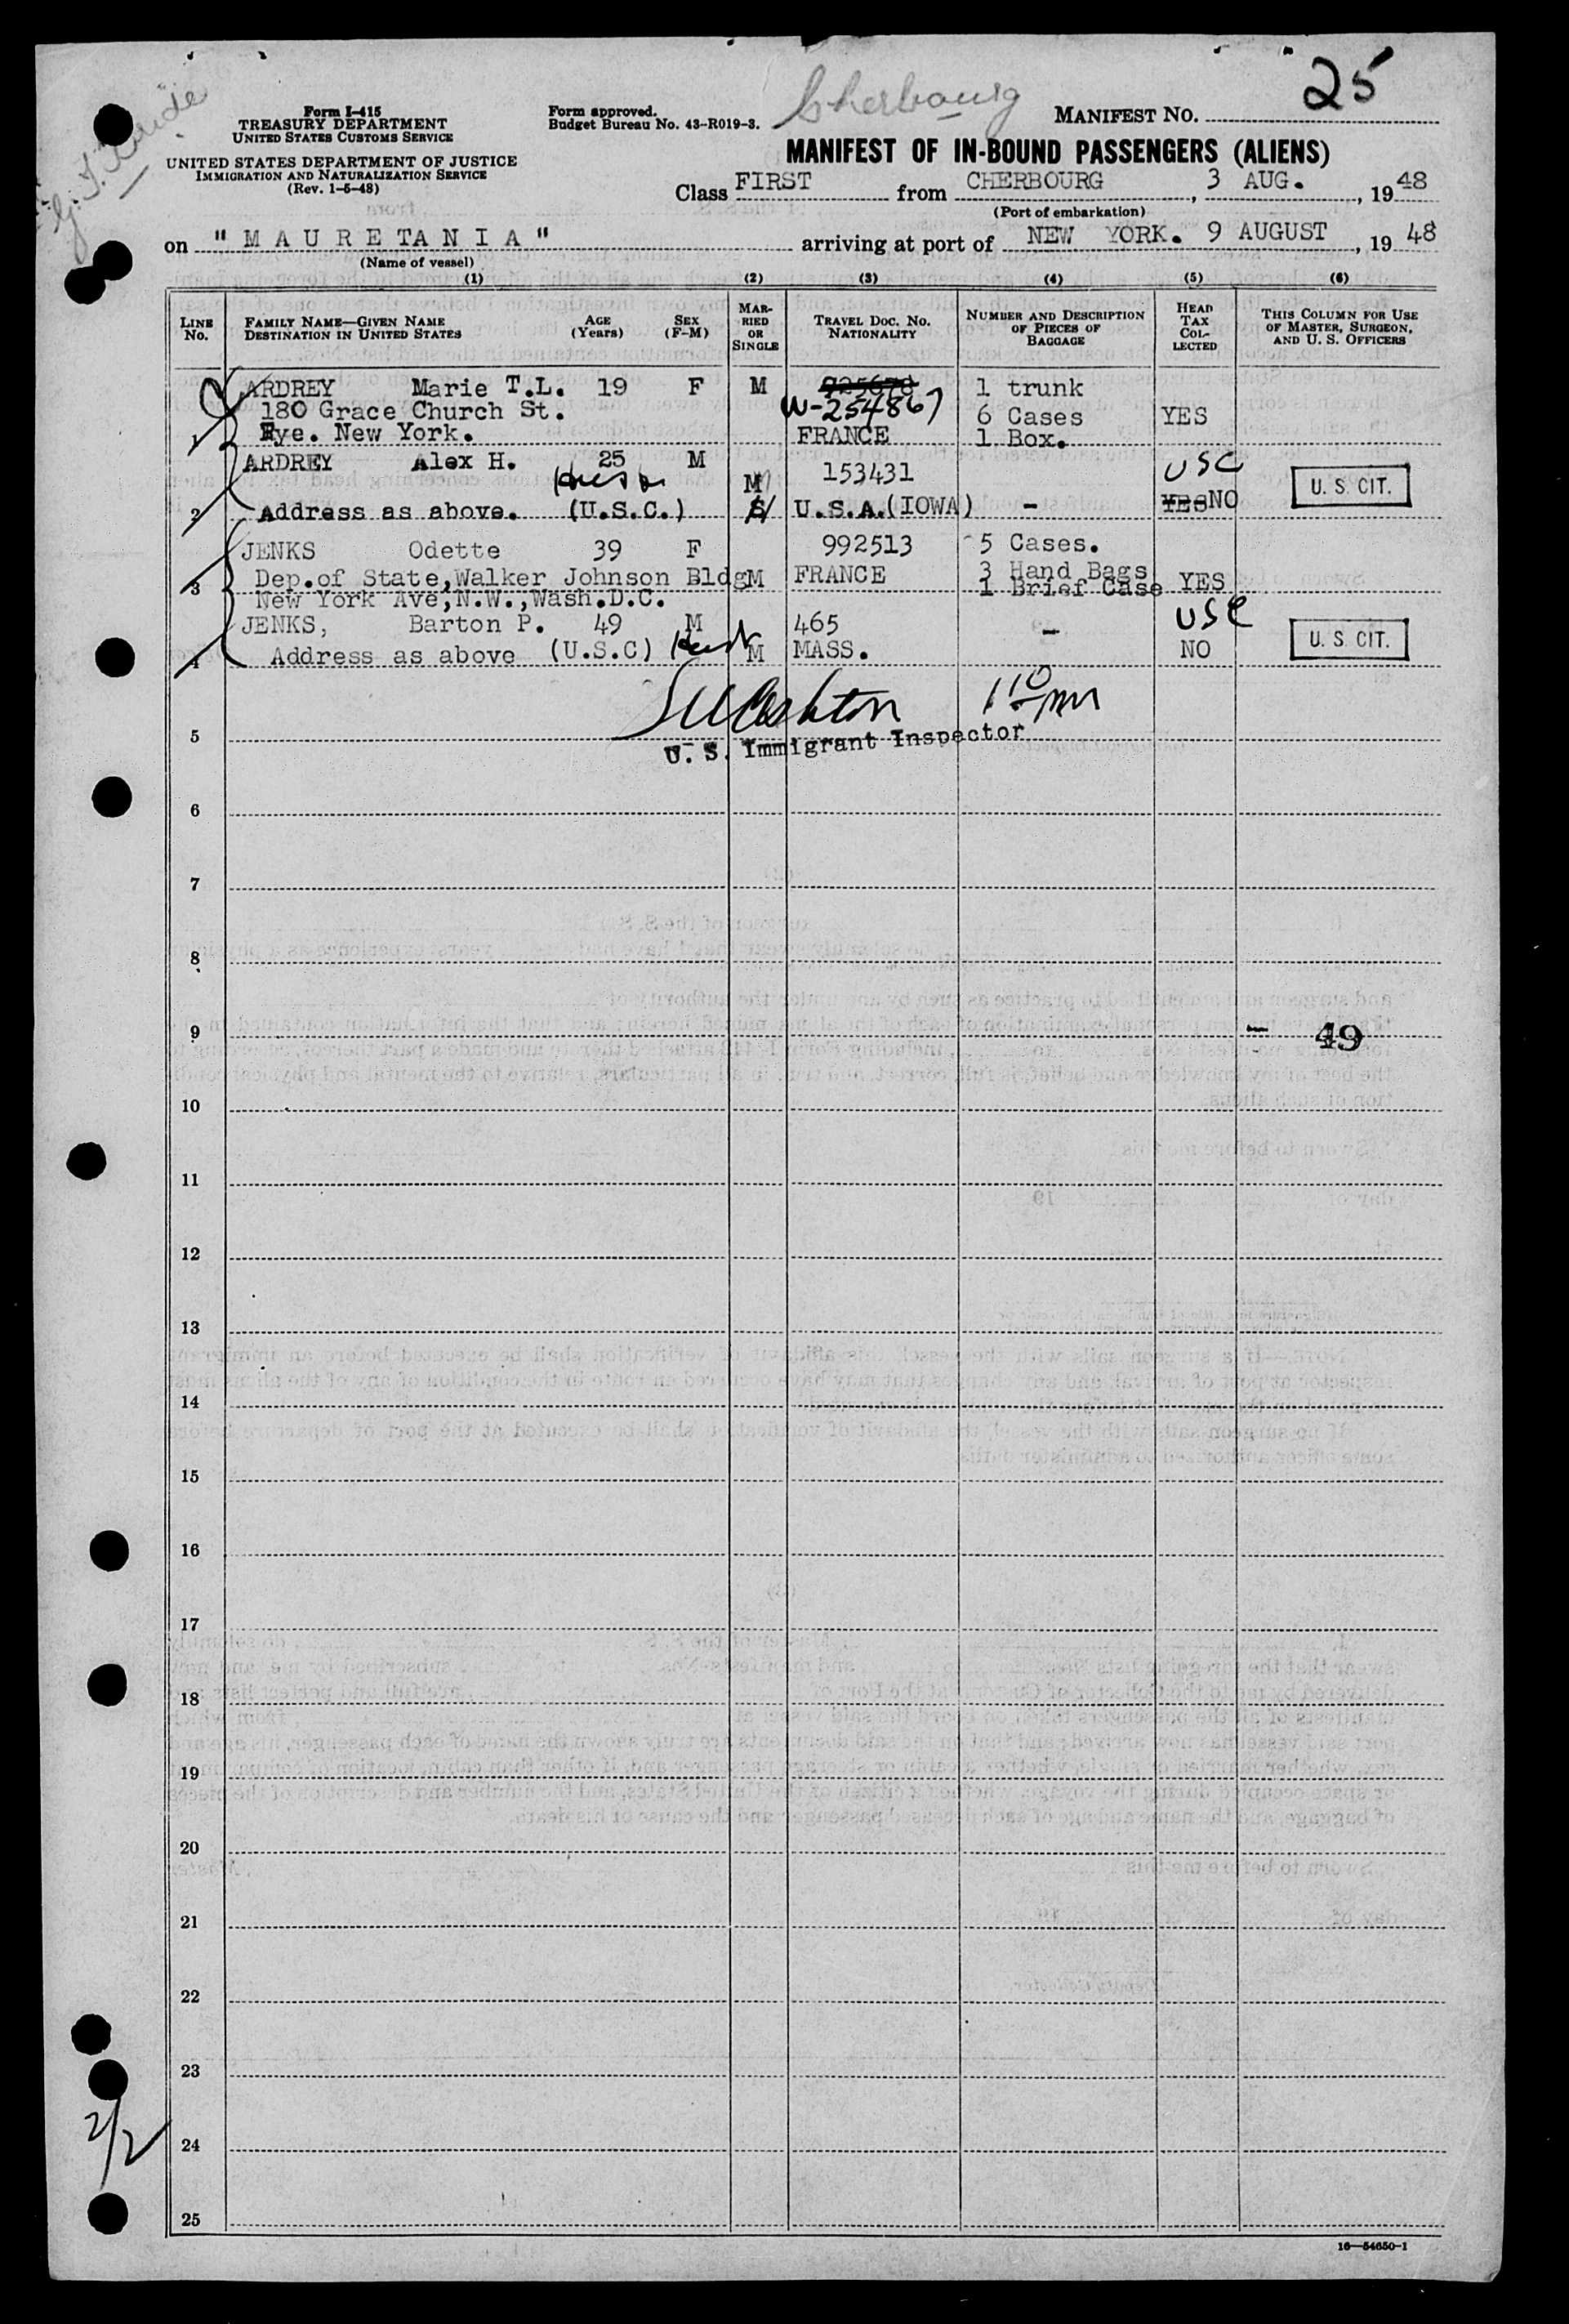 Cherbourg
25
Form I-415
TREASURY DEPARTMENT
UNITED STATES CUSTOMS SERVICE
Form approved.
Budget Bureau No. 43-R019-3.
MANIFEST NO.
UNITED STATES DEPARTMENT OF JUSTICE
IMMIGRATION AND NATURALIZATION SERVICE
(Rev. 1-5-48)
MANIFEST OF IN-BOUND PASSENGERS (ALIENS)
Class FIRST from CHERBOURG, 3 AUG., 1948
(Port of embarkation)
on "MAURETANIA" arriving at port of NEW YORK. 9 AUGUST, 1948
(Name of vessel)
(1) (2) (3) (4) (5) (6)
LINE No. FAMILY NAME—GIVEN NAME DESTINATION IN UNITED STATES AGE (Years) SEX (F-M) MARRIED OR SINGLE TRAVEL DOC. NO. NATIONALITY NUMBER AND DESCRIPTION OF PIECES OF BAGGAGE HEAD TAX COLLECTED THIS COLUMN FOR USE OF MASTER, SURGEON, AND U. S. OFFICERS
ARDREY Marie T.L. 19 F M 925678 1 trunk
180 Grace Church St. W-254867 6 Cases YES
1 Rye. New York. FRANCE 1 Box.
ARDREY Alex H. 25 M 153431 USC
2 Address as above. (U.S.C.) M S U.S.A.(IOWA) - YES NO U. S. CIT.
JENKS Odette 39 F 992513 5 Cases.
3 Dep.of State,Walker Johnson Bldg M FRANCE 3 Hand Bags YES
New York Ave,N.W.,Wash.D.C. 1 Brief Case
JENKS, Barton P. 49 M 465 - USC
4 Address as above (U.S.C) M MASS. NO U. S. CIT.
5 U. S. Immigrant Inspector
6
7
8
9 - 49
10
11
12
13
14
15
16
17
18
19
20
21
22
23
2/2
24
25
16—54650-1